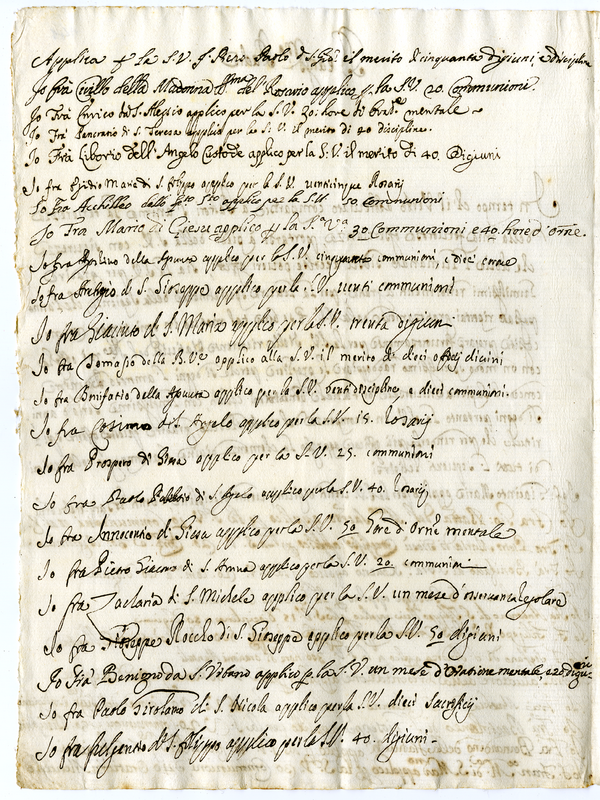 Applica p la S.V. f. Piero Paolo di S. Gio. il merito di cinquanta digiuni, e discipline
Io frà Cirillo della Madonna del Rosario applico p. la S.V. 20. Communioni.
Io Frà Enrico di S. Alessio applico per la S.V. 30. hore di mentale
Io Frà Pancratio di S. Teresa applico per la S.V. il merito di 20 Discipline.
Io Frà Liborio dell'Angelo Custode applico per la S.V. il merito di 40. Digiuni
Io fra Egidio Maria di S. Filippo applico per la S.V. venticinque Rosarij
Io Fra Achilleo dello Spto Sto applico per la S.V. 10 Communioni
Io Fra Mario di Giesu applico p la S.a V.a 30 Communioni e 40. hore d'orne.
Io fra della Apuara applico per la S.V. cinquanta communioni, e dieci
Io fra di S. Gioseppe applico per la S.V. venti communioni
Io fra Giacinto di S. Maria applico per la S.V. trenta digiuni
Io fra Tomaso della B.Ve applico alla S.V. il merito di dieci offitij divini
Io fra Bonifatio della applico per la S.V. venti discipline, e dieci communioni.
Io fra Cosimo di S. Angelo applico per la S.V. 15. Rosarij
Io fra Prospero di Giesu applico per la S.V. 25. communioni
Io fra Paolo di S. applico per la S.V. 40. Rosarij
Io fra Innocentio di Giesu applico per la S.V. 50 hore d'Orne mentale
Io fra Pietro Giacomo di S. Anna applico per la S.V. 20. communioni
Io fra Zaclaria di S. Michele applico per la S.V. un mese d'osservanza Regolare
Io fra Gioseppe Rocclo di S. Gioseppe applico per la S.V. 50 digiuni
Io Frà Benigno da S. Urbano applico p la S.V. un mese d'Oratione mentale, e 20 digiuni
Io fra Paolo Girolamo di S. Nicola applico per la S.V. dieci sacrificij
Io fra Fulgentio di S. Filippo applico per la S.V. 40. digiuni.